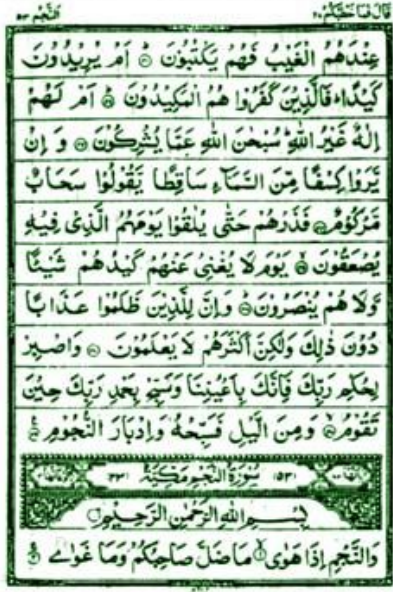 قَالَ فَمَا خَطْبُكُمْ ٢٧ النَّجْم ٥٣
عِنْدَهُمُ الْغَيْبُ فَهُمْ يَكْتُبُوْنَ ؕ اَمْ يُرِيْدُوْنَ
كَيْدًا ؕ فَالَّذِيْنَ كَفَرُوْا هُمُ الْمَكِيْدُوْنَ ؕ اَمْ لَهُمْ
اِلٰهٌ غَيْرُ اللّٰهِ ؕ سُبْحٰنَ اللّٰهِ عَمَّا يُشْرِكُوْنَ وَ اِنْ
يَّرَوْا كِسْفًا مِّنَ السَّمَآءِ سَاقِطًا يَّقُوْلُوْا سَحَابٌ
مَّرْكُوْمٌ فَذَرْهُمْ حَتّٰى يُلٰقُوْا يَوْمَهُمُ الَّذِىْ فِيْهِ
يُصْعَقُوْنَ يَوْمَ لَا يُغْنِىْ عَنْهُمْ كَيْدُهُمْ شَيْئًا
وَّلَا هُمْ يُنْصَرُوْنَ ؕ وَاِنَّ لِلَّذِيْنَ ظَلَمُوْا عَذَابًا
دُوْنَ ذٰلِكَ وَلٰكِنَّ اَكْثَرَهُمْ لَا يَعْلَمُوْنَ وَاصْبِرْ
لِحُكْمِ رَبِّكَ فَاِنَّكَ بِاَعْيُنِنَا وَسَبِّحْ بِحَمْدِ رَبِّكَ حِيْنَ
تَقُوْمُ وَمِنَ الَّيْلِ فَسَبِّحْهُ وَاِدْبَارَ النُّجُوْمِ
(٥٣) سُوْرَةُ النَّجْمِ مَكِّيَّةٌ (٢٣)
بِسْمِ اللّٰهِ الرَّحْمٰنِ الرَّحِيْمِ
وَالنَّجْمِ اِذَا هَوٰى مَا ضَلَّ صَاحِبُكُمْ وَمَا غَوٰى